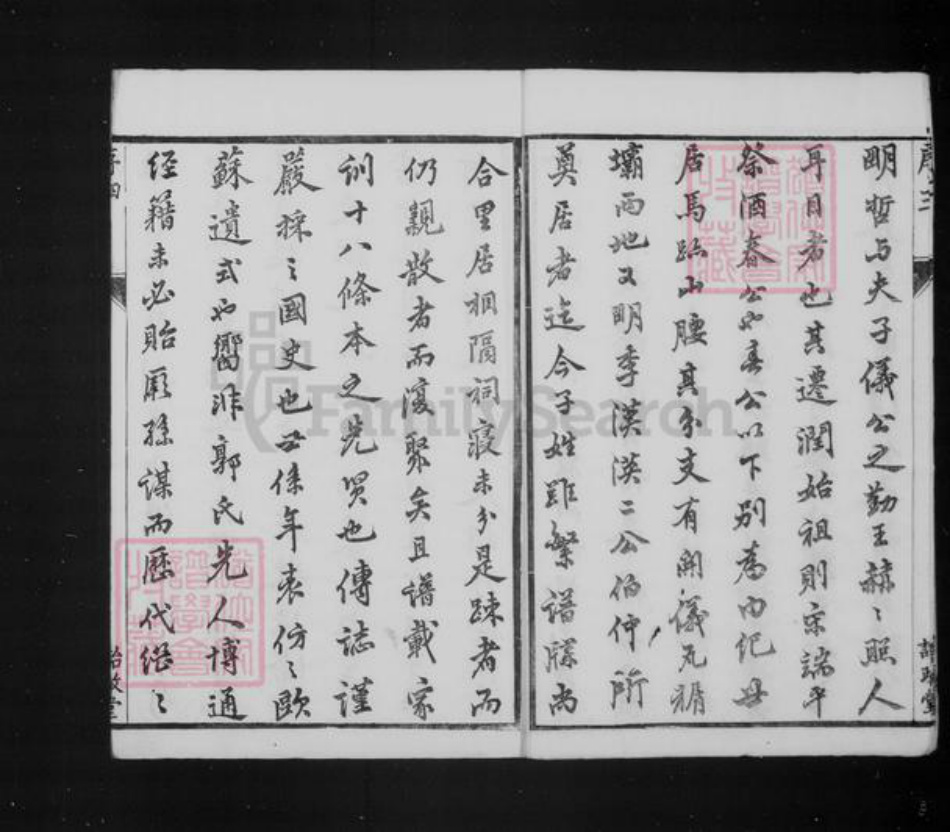 明哲与夫子儀公之勤王赫〻照人
耳目者也其遷潤始祖則宋端平
祭酒春公也春公以下別為内紀世
居馬跡山腰真分支有開儀元
壩兩地又明季漢漢二公伯仲所
奠居者迄今子姓雖繁譜牒尚
合里居相隔祠寢未分是踈者而
仍親散者而復聚矣且譜載家
訓十八條本之先賢也傳誌謹
嚴採之國史也世係年表仿之歐
蘇遺式也嚮非郭氏先人博通
經籍未必貽厥孫謀而歷代繼〻
序四
FamilySearch